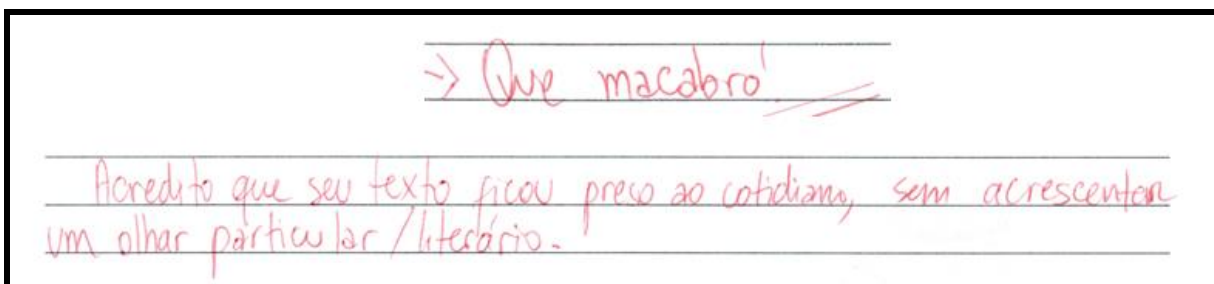 -> Que macabro!
Acredito que seu texto ficou preso ao cotidiano, sem acrescentar
um olhar particular/literário.